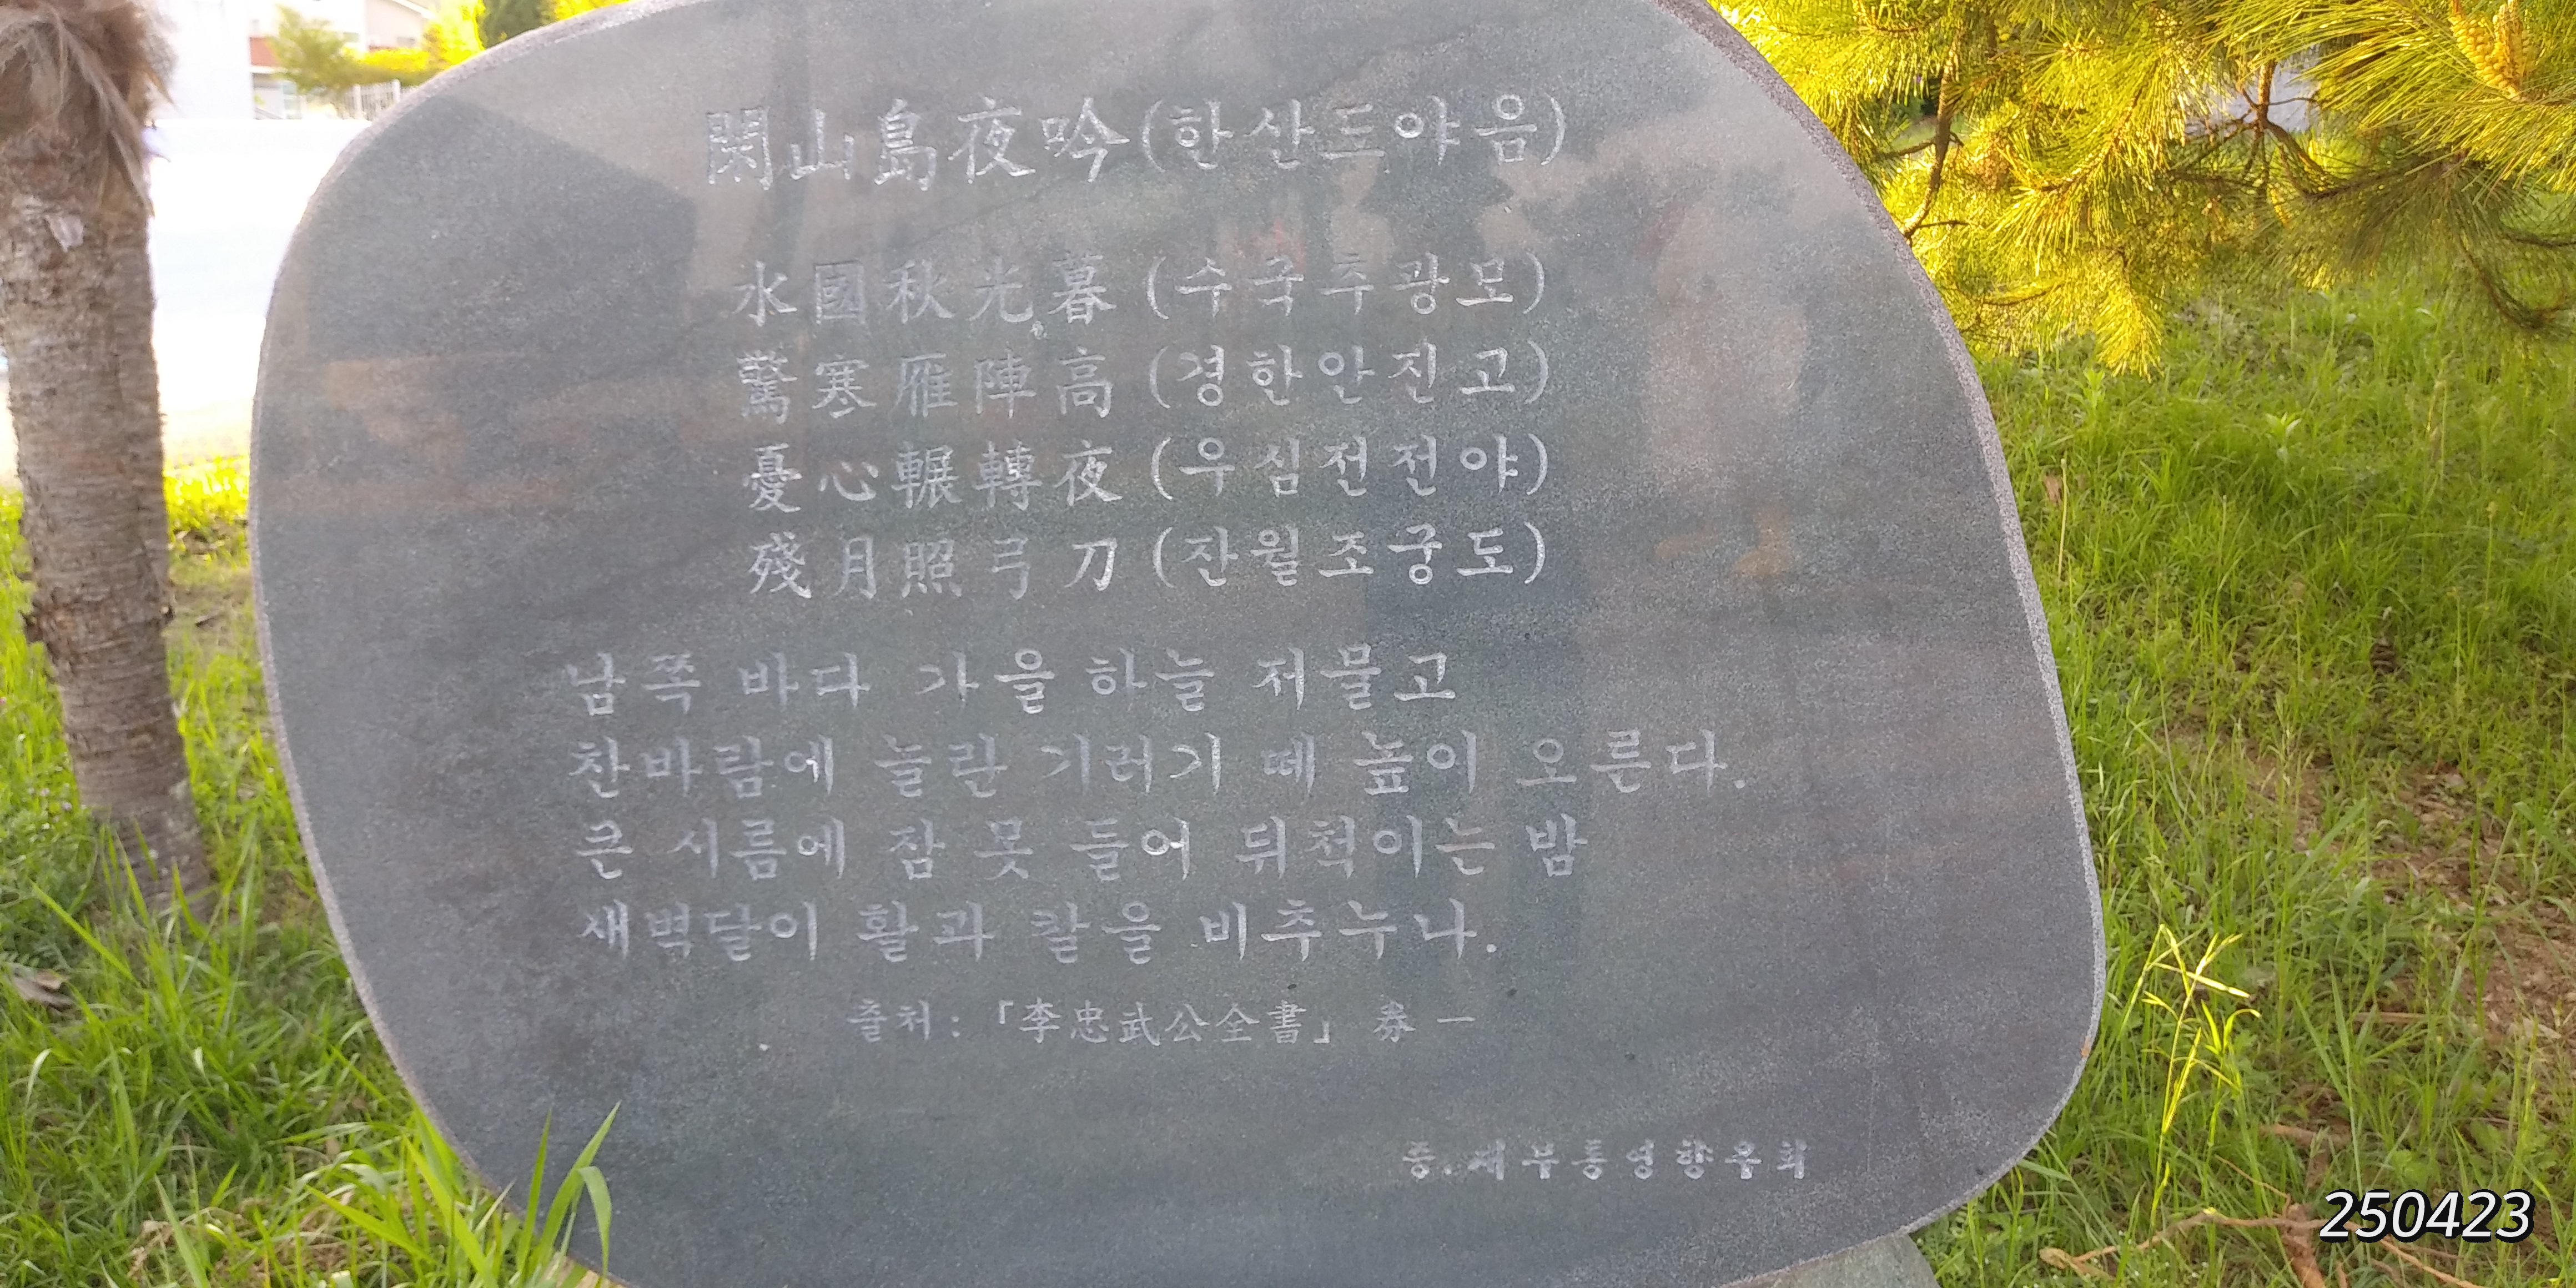 閑山島夜吟(한산도야음)
水國秋光暮(수국추광모)
驚寒雁陣高(경한안진고)
憂心輾轉夜(우심전전야)
殘月照弓刀(잔월조궁도)
남쪽 바다 가을 하늘 저물고
찬바람에 놀란 기러기 떼 높이 오른다.
큰 시름에 잠 못 들어 뒤척이는 밤
새벽달이 활과 칼을 비추누나.
출처:「李忠武公全書」 券 一
증.재부통영향우회
250423